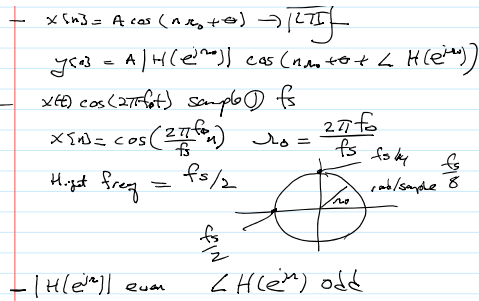 - x[n] = A cos (nΩ₀+θ) → [LTI]-
y[n] = A |H(e^{jΩ₀})| cos (nΩ₀+θ+∠ H(e^{jΩ₀}))
- x(t) cos(2πf₀t) sample @ fs
x[n] = cos(2πf₀/fs n) Ω₀ = 2πf₀/fs
fs by
Highest freq = fs/2
rad/sample fs/8
Ω₀
fs/2
- |H(e^{jΩ})| even ∠H(e^{jΩ}) odd